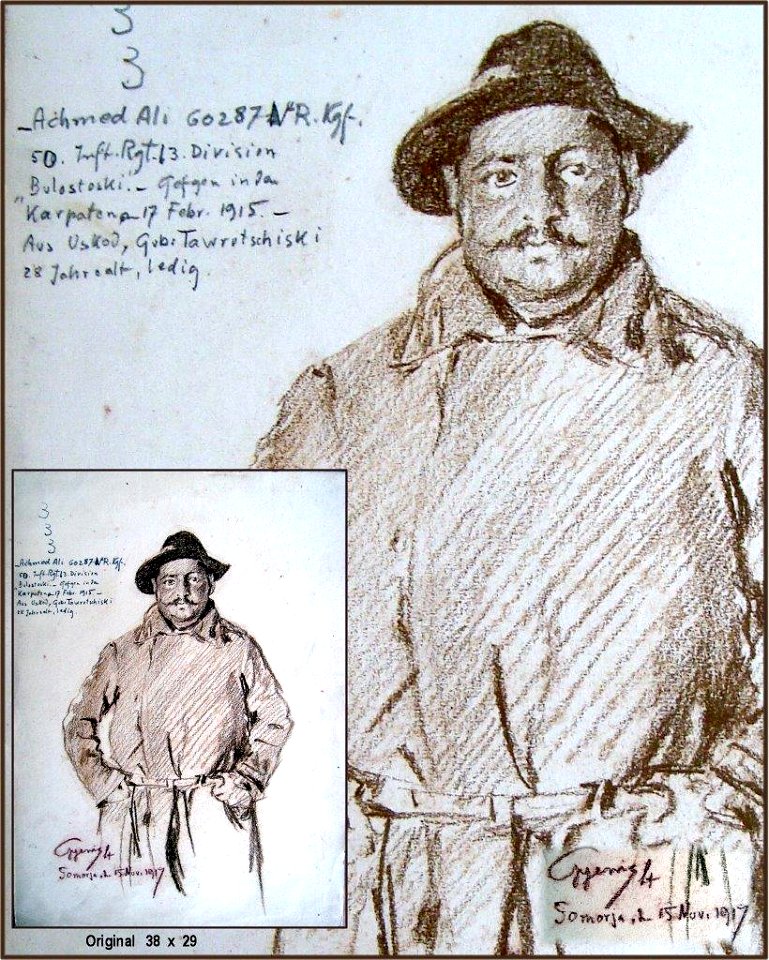 3
3
Achmed Ali 60287 R. Kgf.
50. Inft. Rgt. 13. Division
Bulostoski. – Gefgen in den
Karpaten 17 Febr. 1915. –
Aus Uskod, Gub: Tawretschiski
28 Jahre alt, ledig.
3
3
3
Achmed Ali 60287 R. Kgf.
50. Inft. Rgt. 13. Division
Bulostoski. – Gefgen in den
Karpaten 17 Febr. 1915 –
Aus Uskod, Gub: Tawretschiski
28 Jahre alt, ledig
Somorja, d. 15 Nov. 1917
Somorja, d. 15 Nov. 1917
Original 38 x 29